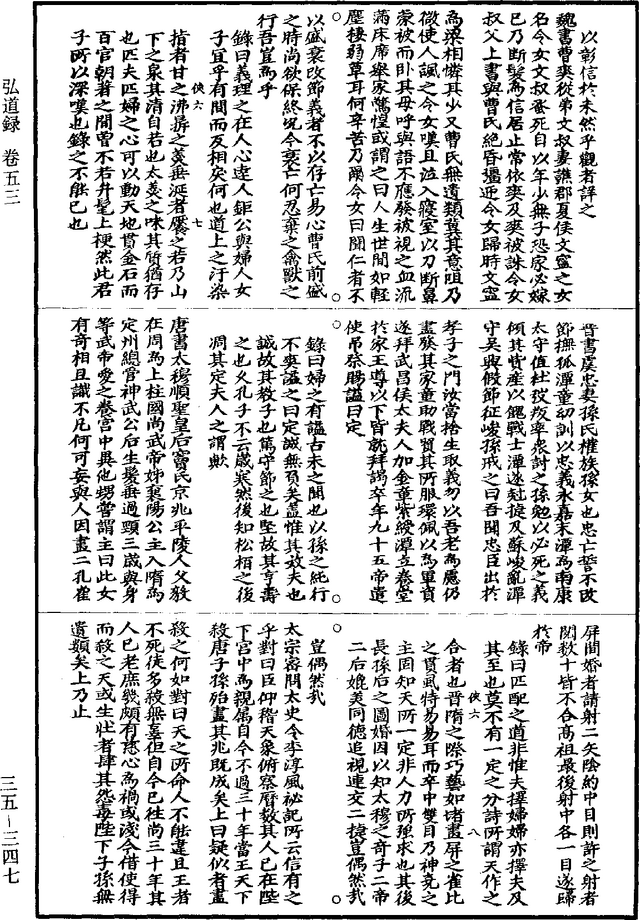 以彰信於未然乎觀者詳之
魏書曹爽從弟文叔妻譙郡夏侯文寧之女
名令女文叔蚤死自以年少無子恐家必嫁
已乃斷髮為信居止常依爽及爽被誅令女
叔父上書與曹氏絶昏彊迎令女歸時文寧
為梁相憐其少又曹氏無遺類冀其意阻乃
微使人諷之令女嘆且泣入寢室以刀斷鼻
蒙被而卧其母呼與語不應發被視之血流
滿床席舉家驚惶或謂之曰人生世間如輕
塵棲弱草耳何辛苦乃爾令女曰聞仁者不
以盛衰改節義者不以存亡易心曹氏前盛
之時尚欲保終況今衰亡何忍棄之禽獸之
行吾豈為乎
錄曰義理之在人心逵人鉅公與婦人女
子宜乎有間而反相戾何也道上之汙染
指者甘之沸鼎之羹垂涎者饜之若乃山
下之泉其清自若也太羹之味其質猶存
也匹夫匹婦之心可以動天地貫金石而
百官朝著之間曾不若升髦上梗然此君
子所以深嘆也錄之不能已也
晉書虞忠妻孫氏權族孫女也忠亡誓不改
節撫孤潭童幼訓以忠義永嘉末潭為南康
太守值杜弢叛率衆討之孫勉以必死之義
傾其貲産以餽戰士潭遂尅捷及蘇峻亂潭
守吳興假節征峻孫戒之曰吾聞忠臣出於
孝子之門汝當捨生取義勿以吾老為慮仍
盡發其家童助戰貿其所服環佩以為軍資
遂拜武昌侯太夫人加金章紫綬潭立養堂
於家王導以下皆就拜謁卒年九十五帝遣
使吊祭賜謚曰定
錄曰婦之有謚古未之聞也以孫之純行
不爽謚之曰定誠無負矣蓋惟其敎夫也
誠故其教子也篤守節之也堅故其享壽
之也久孔子不云歲寒然後知松栢之後
凋其定夫人之謂歟
唐書太穆順聖皇后竇氏京兆平陵人父毅
在周為上柱國尚武帝姊襄陽公主入隋為
定州總管神武公后生髮垂過頸三歲與身
等武帝愛之養宮中異他甥嘗謂主曰此女
有奇相且識不凡何可妄與人因畫二孔雀
屏間婚者請射二矢陰約中目則許之射者
閱數十皆不合高祖最後射中各一目遂歸
於帝
錄曰匹配之道非惟夫擇婦婦亦擇夫及
其至也莫不有一定之分詩所謂天作之
合者也晉隋之際巧藝如堵畫屏之雀比
之貫風特易易耳而卒中雙目乃神堯之
主固知天所一定非人力所強求也其後
長孫后之圖婚因以知太穆之奇子二帝
二后媲美同德追視連交二捷豈偶然哉
豈偶然哉
太宗密問太史令李淳風祕記所云信有之
乎對曰臣仰稽天象俯察曆數其人已在陛
下宮中為親屬自今不過三十年當王天下
殺唐子孫殆盡其兆既成矣上曰疑似者盡
殺之何如對曰天之所命人不能違且王者
不死徒多殺無辜但自今已往尚三十年其
人已老庶幾頗有慈心為禍或淺今借使得
而殺之天或生壯者肆其怨毒陛下子孫無
遺類矣上乃止
弘道録 卷五三
三五－三四七
俠六 七
俠六 八